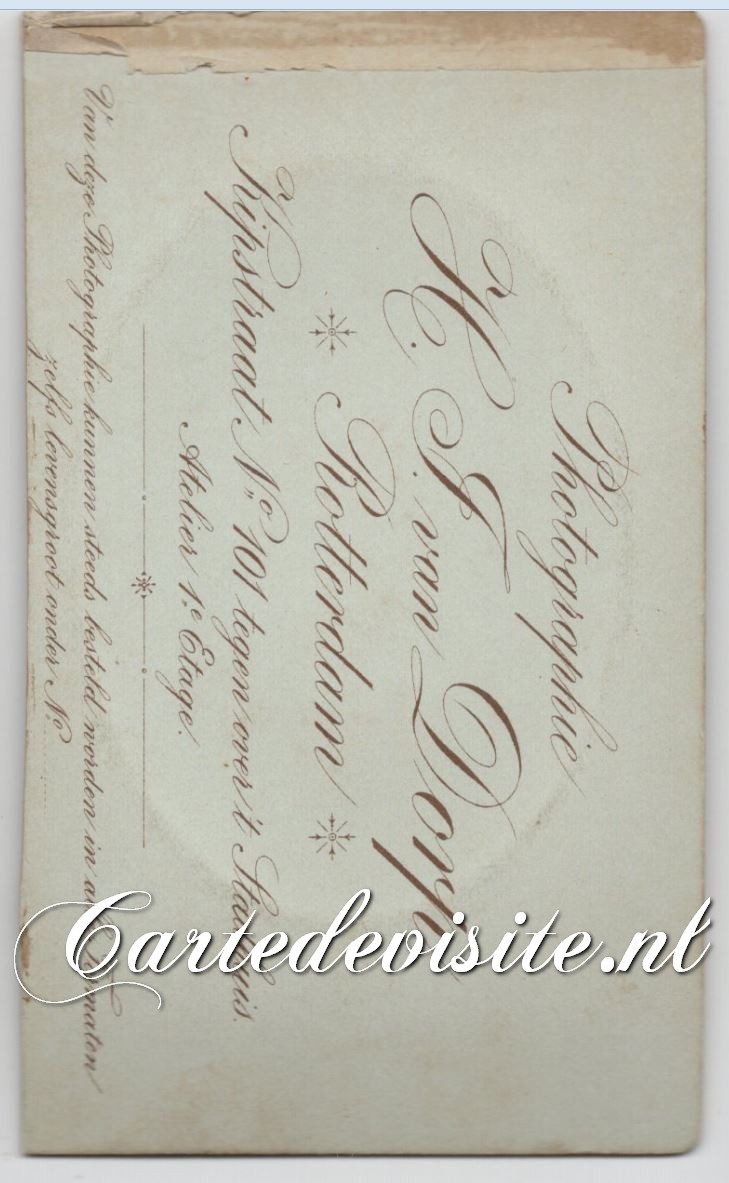 Photographie
H. J. van Dorp
Rotterdam
Kipstraat No. 101 tegen over 't Stadhuis.
Atelier 1e Etage.
Van deze Photographie kunnen steeds besteld worden in alle Formaten
zelfs levensgroot onder No.
Cartedevisite.nl